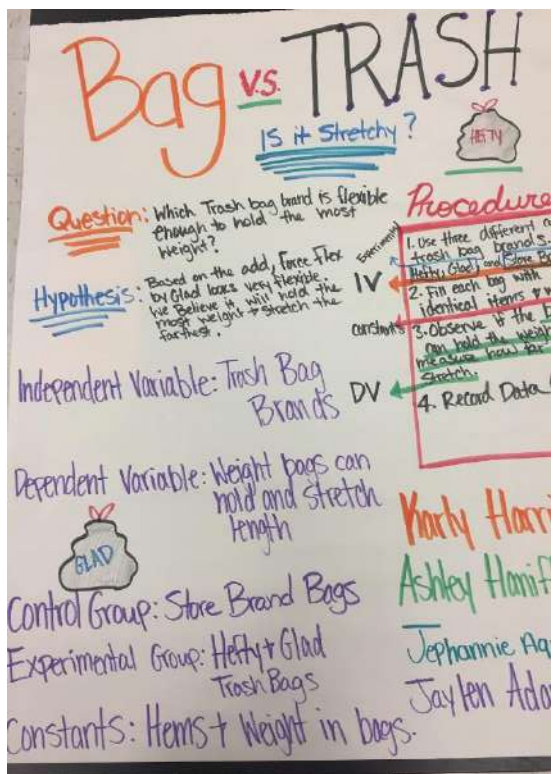 Bag V.S. TRASH
Is it Stretchy?
HEFTY
Question: Which Trash bag brand is flexible
enough to hold the most
weight?
Hypothesis: Based on the add, Force Flex
by Glad looks very flexible.
We Believe it will hold the
most weight + stretch the
farthest.
Independent Variable: Trash Bag
Brands
Dependent Variable: Weight bags can
hold and stretch
length
GLAD
Control Group: Store Brand Bags
Experimental Group: Hefty + Glad
Trash Bags
Constants: Items + Weight in bags.
Procedure
Experimental
IV
constants
DV
1. Use three different
trash bag brands
Hefty, Glad, and Store
2. Fill each bag with
identical items +
3. Observe if the
can hold the weight
measure how far
stretch.
4. Record Data
Karly
Ashley
Jephannie
Jaylen